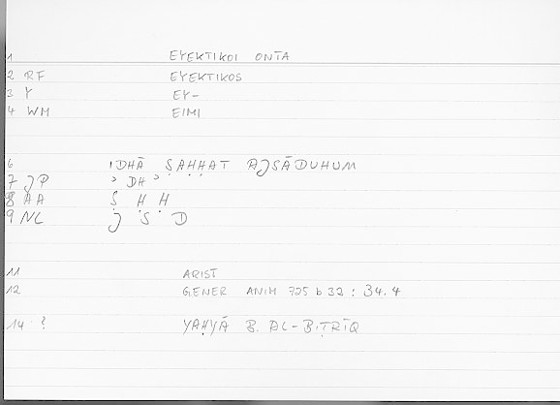 1 EYEKTIKOI ONTA
2 RF EYEKTIKOS
3 Y EY-
4 WM EIMI
6 ʾIDHĀ ṢAḤḤAT AJSĀDUHUM
7 JP ʾ DH ʾ
8 AA Ṣ Ḥ Ḥ
9 NL J S D
11 ARIST
12 GENER ANIM 725 b 32 : 34.4
14 ? YAḤYĀ B. AL-BIṬRĪQ